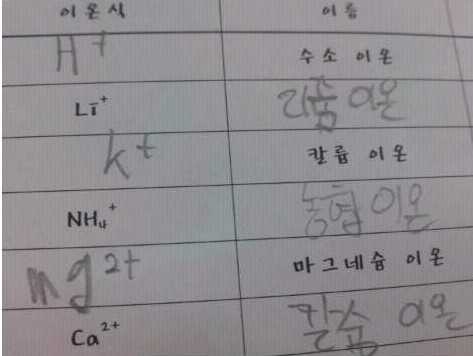 이온식 이름
H⁺ 수소 이온
Li⁺ 리튬 이온
k⁺ 칼륨 이온
NH₄⁺ 농협 이온
mg²⁺ 마그네슘 이온
Ca²⁺ 칼슘 이온